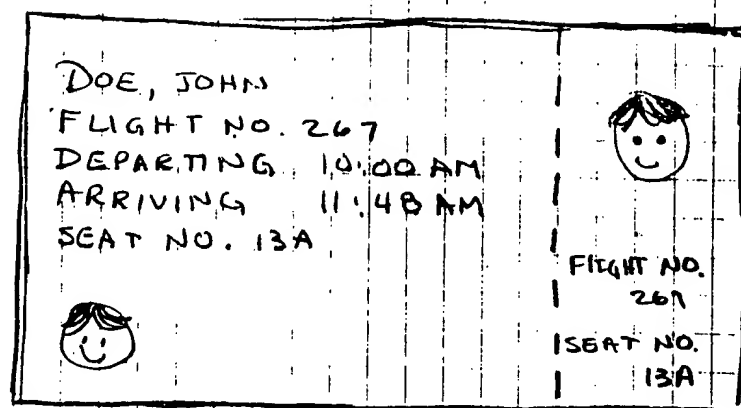 DOE, JOHN
FLIGHT NO. 267
DEPARTING 10:00 AM
ARRIVING 11:48 AM
SEAT NO. 13A
FLIGHT NO.
267
SEAT NO.
13A